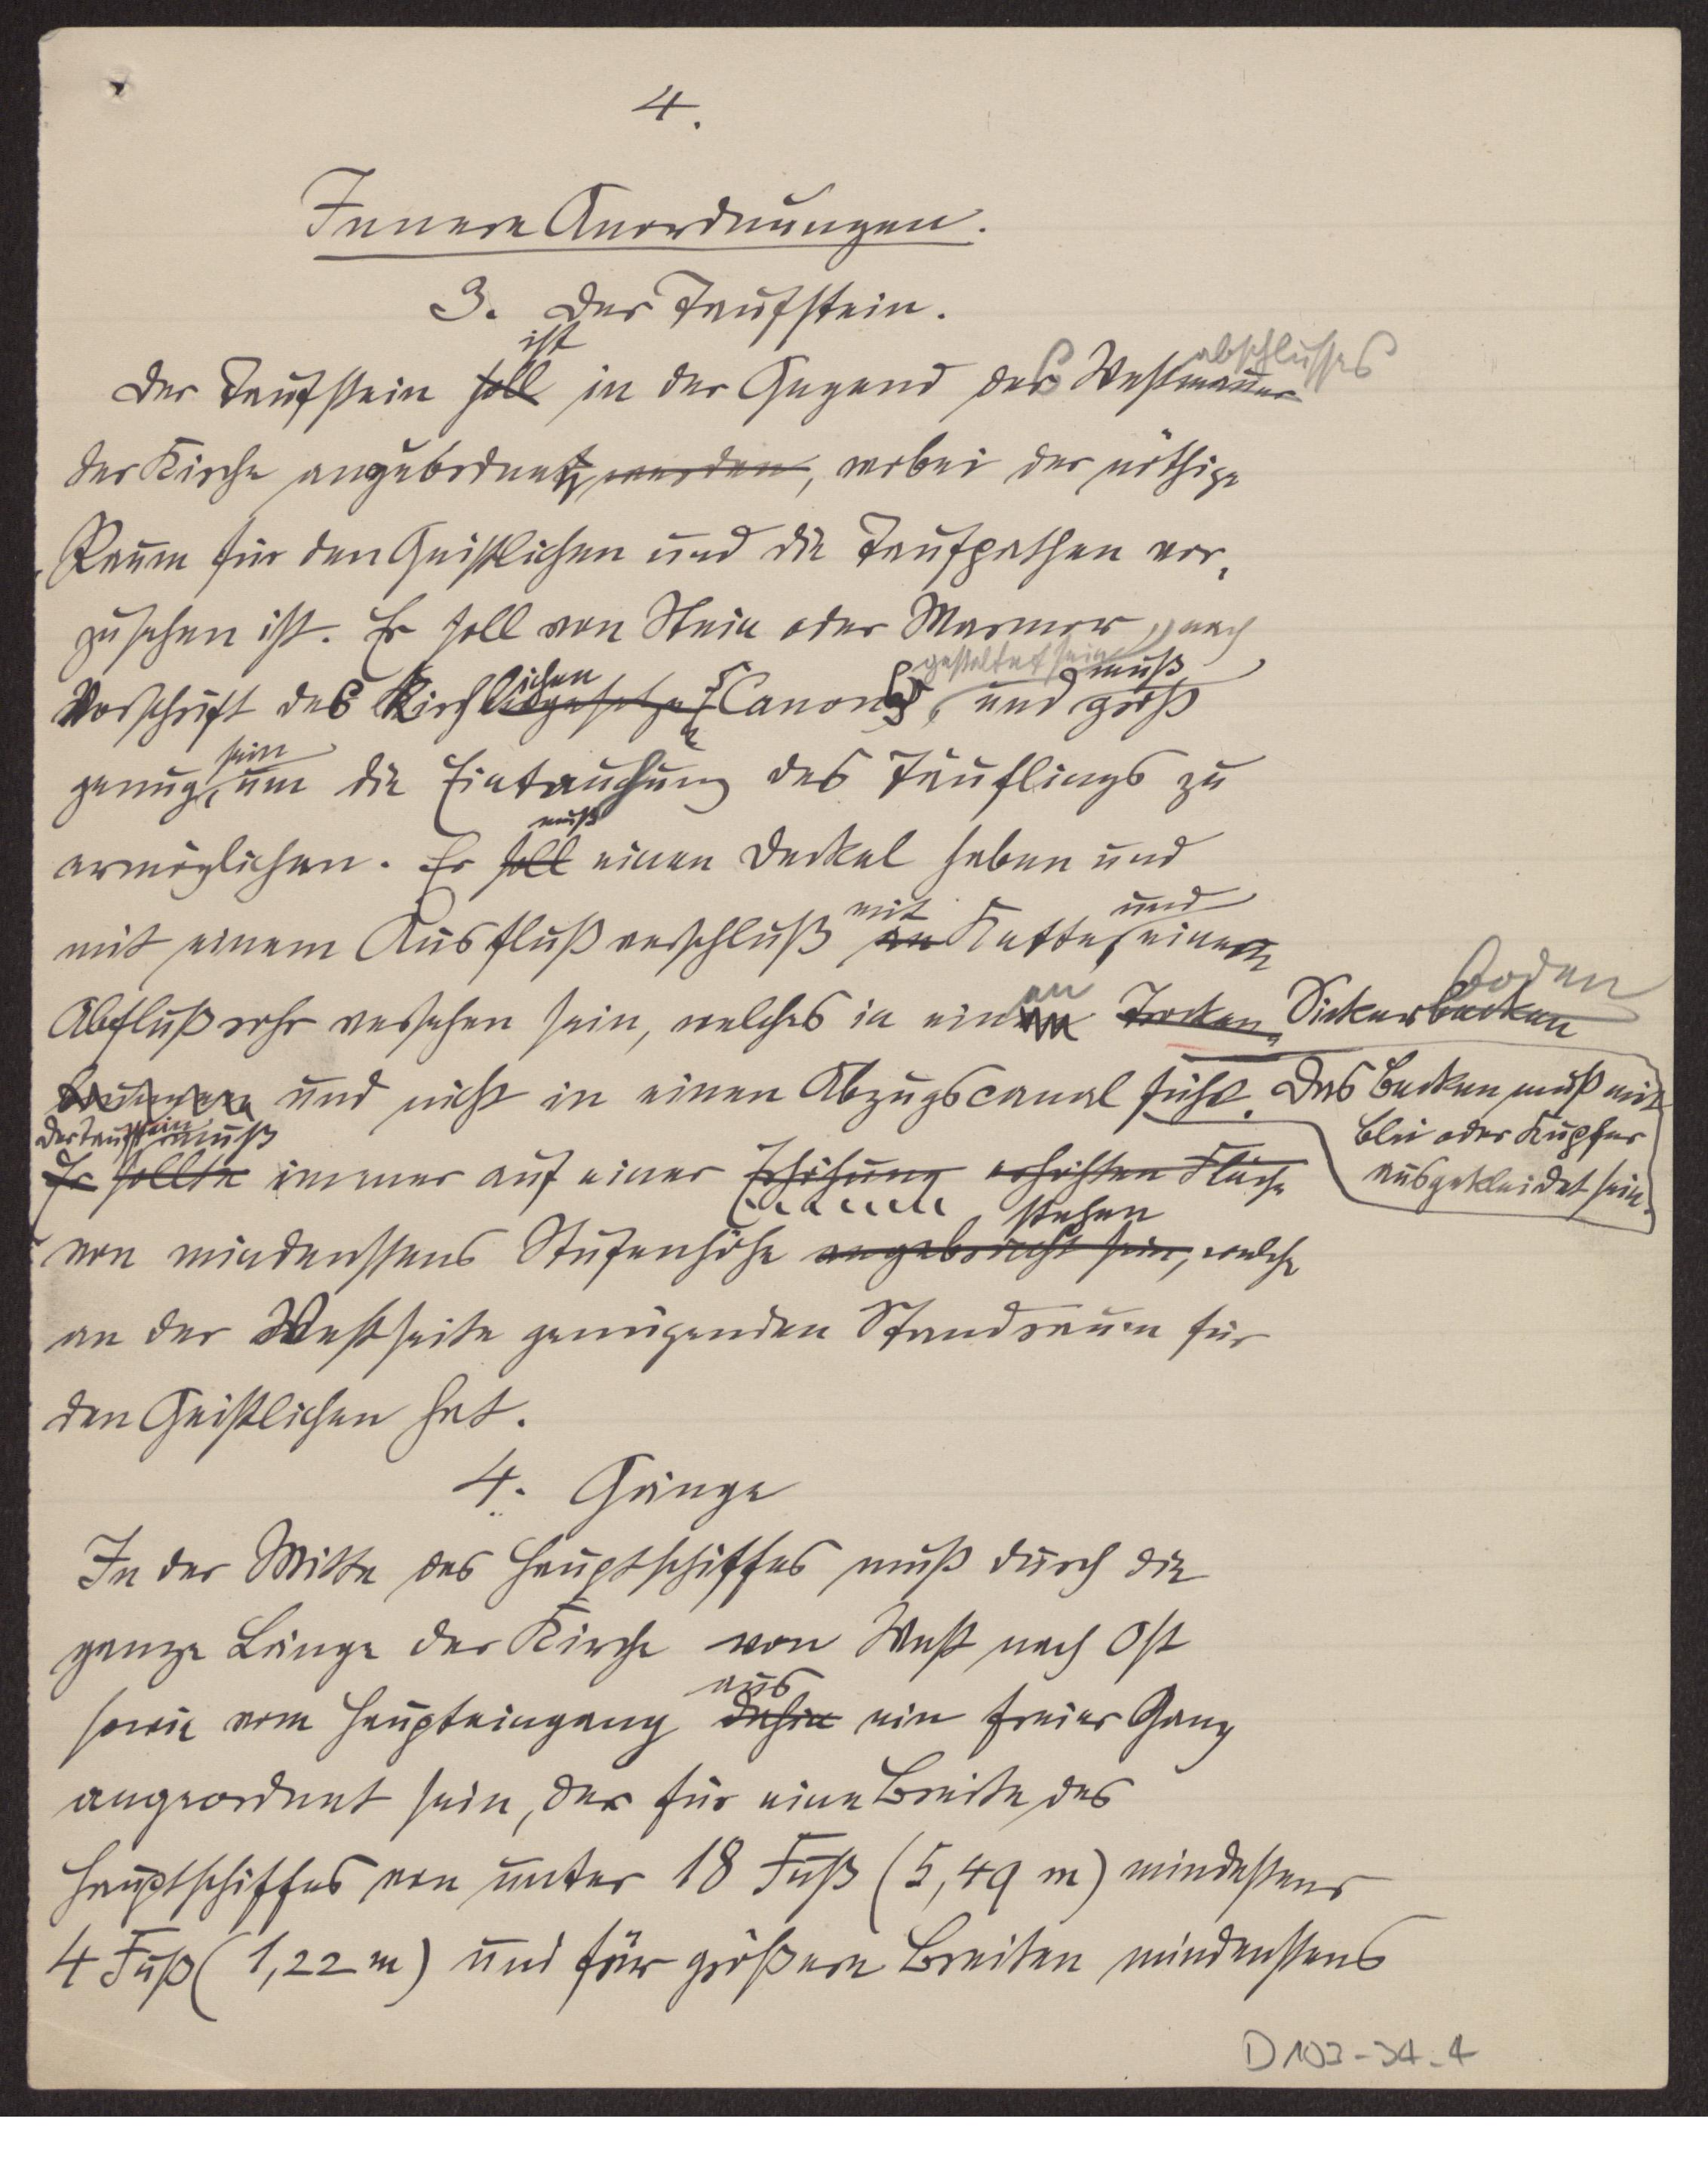 4.
Innere Anordnungen.
3. Der Taufstein.
ist abschlusses
Der Taufstein soll in der Gegend des Westmauer
der Kirche anzubordnet, werden, wobei der nöthige
Raum für den Geistlichen und die Taufpathen vor,
zusehen ist. Er soll von Stein oder Marmor, nach
ichen gestaltet sein muß
Vorschrift des Kirchlichgesetzes Canons, und groß
sein
genug, um die Eintauchung des Täuflings zu
muß
ermöglichen. Er soll einen Deckel haben und
mit und
mit einem Ausflußverschluß an Kette, einem
en boden
Abflußrohr versehen sein, welches in einem Trocken Sickerbecken
brunnen und nicht in einen Abzugscanal führt. Das Becken muß mit
Blei oder Kupfer
ausgekleidet sein.
Der Taufstein muß
Er sollte immer auf einer Erhöhung erhöhten Fläche
stehen
von mindenstens Stufenhöhe angebracht sein, welche
an der Westseite genügenden Standraum für
den Geistlichen hat.
4. Gänge
In der Mitte des Hauptschiffes muß durch die
ganze Länge der Kirche von West nach Ost
aus
sowie vom Haupteingang dahin ein freier Gang
angeordnet sein, der für eine Breite des
Hauptschiffes von unter 18 Fuß (5,49 m) mindestens
4 Fuß (1,22 m) und für größere Breiten mindenstens
D 103-34-4